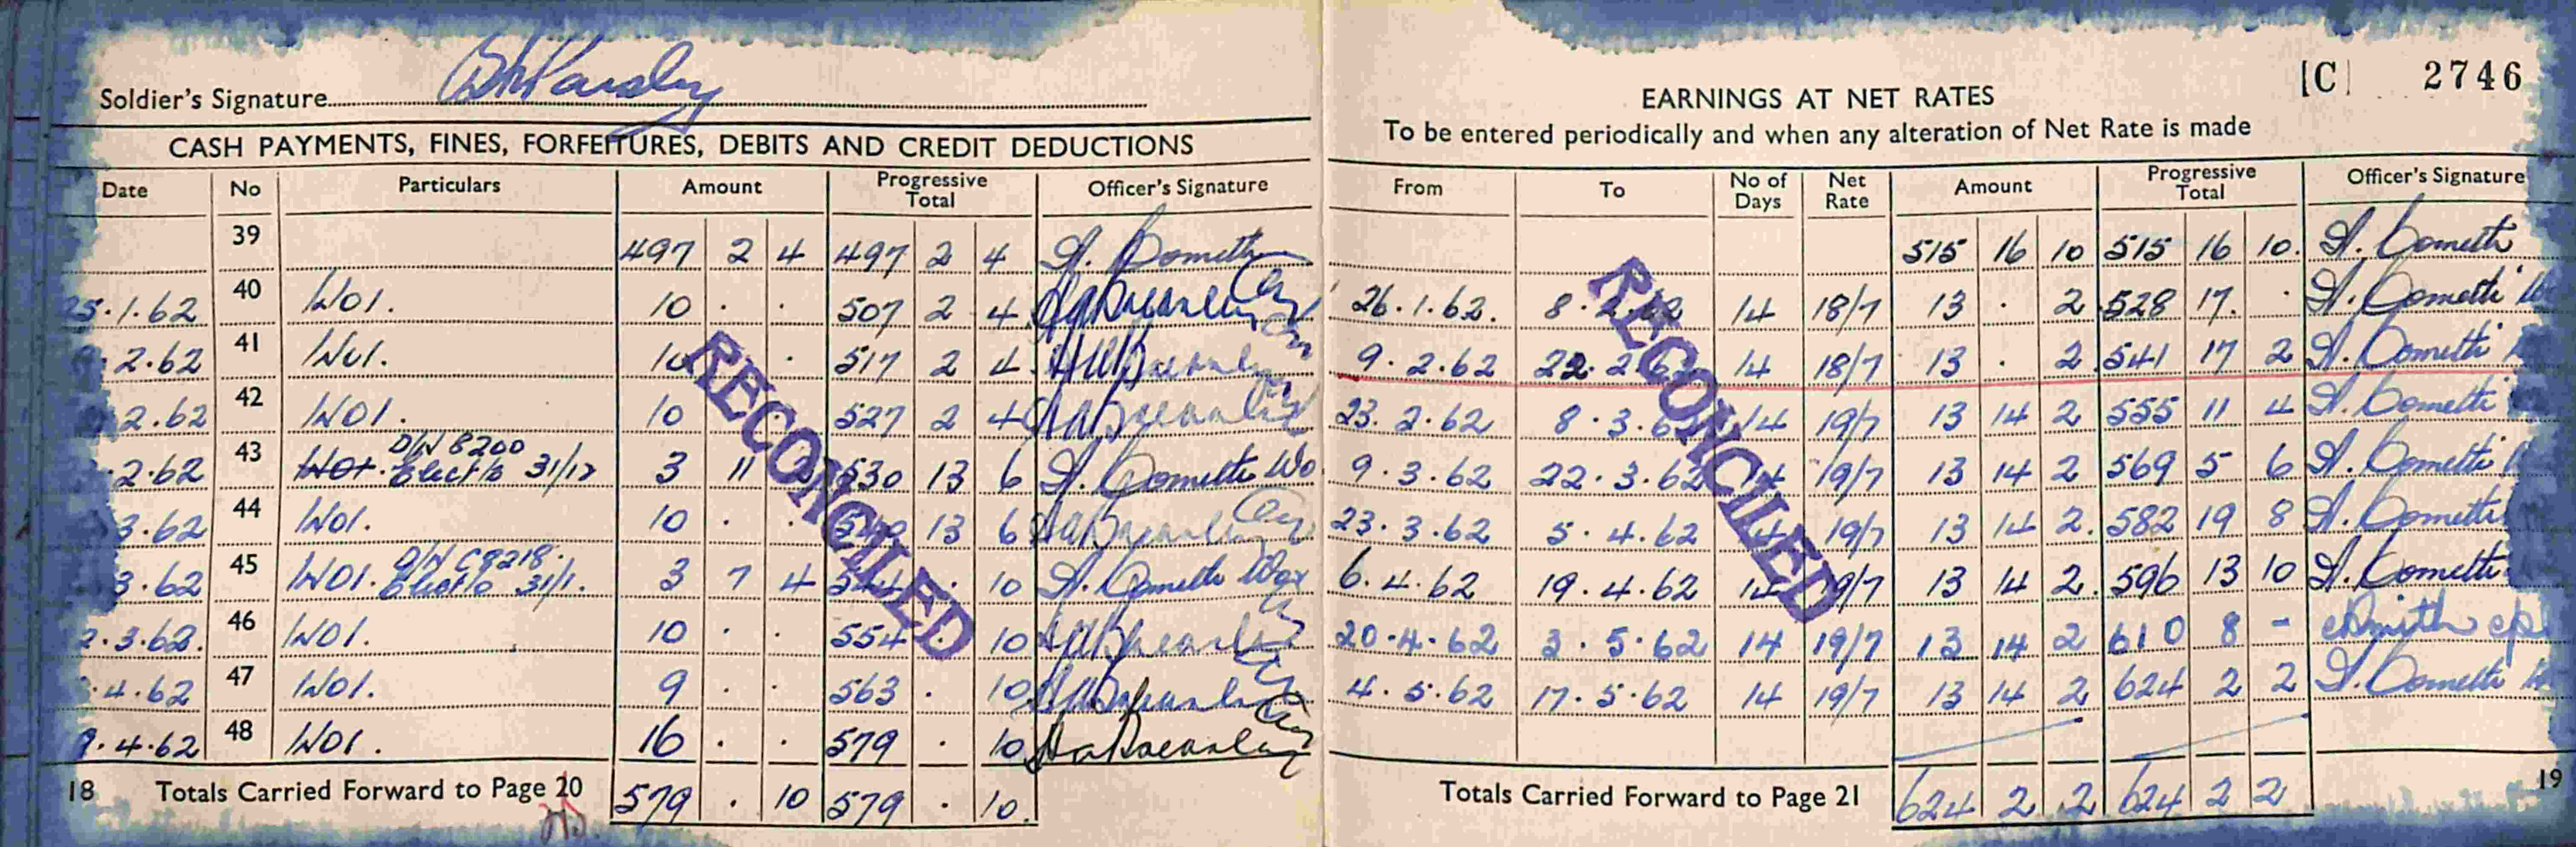 Soldier's Signature
CASH PAYMENTS, FINES, FORFEITURES, DEBITS AND CREDIT DEDUCTIONS
Date No Particulars Amount Progressive Total Officer's Signature
39 497 2 4 497 2 4
25.1.62 40 WO1. 10 . . 507 2 4
2.62 41 WO1. 10 . 517 2 4
2.62 42 WO1. 10 527 2 4
D/N 8200
2.62 43 3 11 530 13 6
3.62 44 WO1. 10 . . 13 6
3.62 45 WO1. 31/1. 3 7 4 . 10
2.3.62. 46 WO1. 10 . . 554 . 10
.4.62 47 WO1. 9 . . 563 . 10
9.4.62 48 WO1. 16 . . 579 . 10
18 Totals Carried Forward to Page 20 579 . 10 579 . 10.
RECONCILED
[C] 2746
EARNINGS AT NET RATES
To be entered periodically and when any alteration of Net Rate is made
From To No of Days Net Rate Amount Progressive Total Officer's Signature
515 16 10 515 16 10. A. Cometti
26.1.62. 8. 14 18/7 13 . 2 528 17. . A. Cometti
9.2.62 22.2 14 18/7 13 . 2 541 17 2 A. Cometti
23.2.62 8.3.6 14 19/7 13 14 2 555 11 4 A. Cometti
9.3.62 22.3.62 14 19/7 13 14 2 569 5 6 A. Cometti
23.3.62 5.4.62 19/7 13 14 2. 582 19 8 A. Cometti
6.4.62 19.4.62 14 9/7 13 14 2. 596 13 10 A. Cometti
20.4.62 3.5.62 14 19/7 13 14 2 610 8 - Smith cpl
4.5.62 17.5.62 14 19/7 13 14 2 624 2 2 A. Cometti
Totals Carried Forward to Page 21 624 2 2 624 2 2 19
RECONCILED